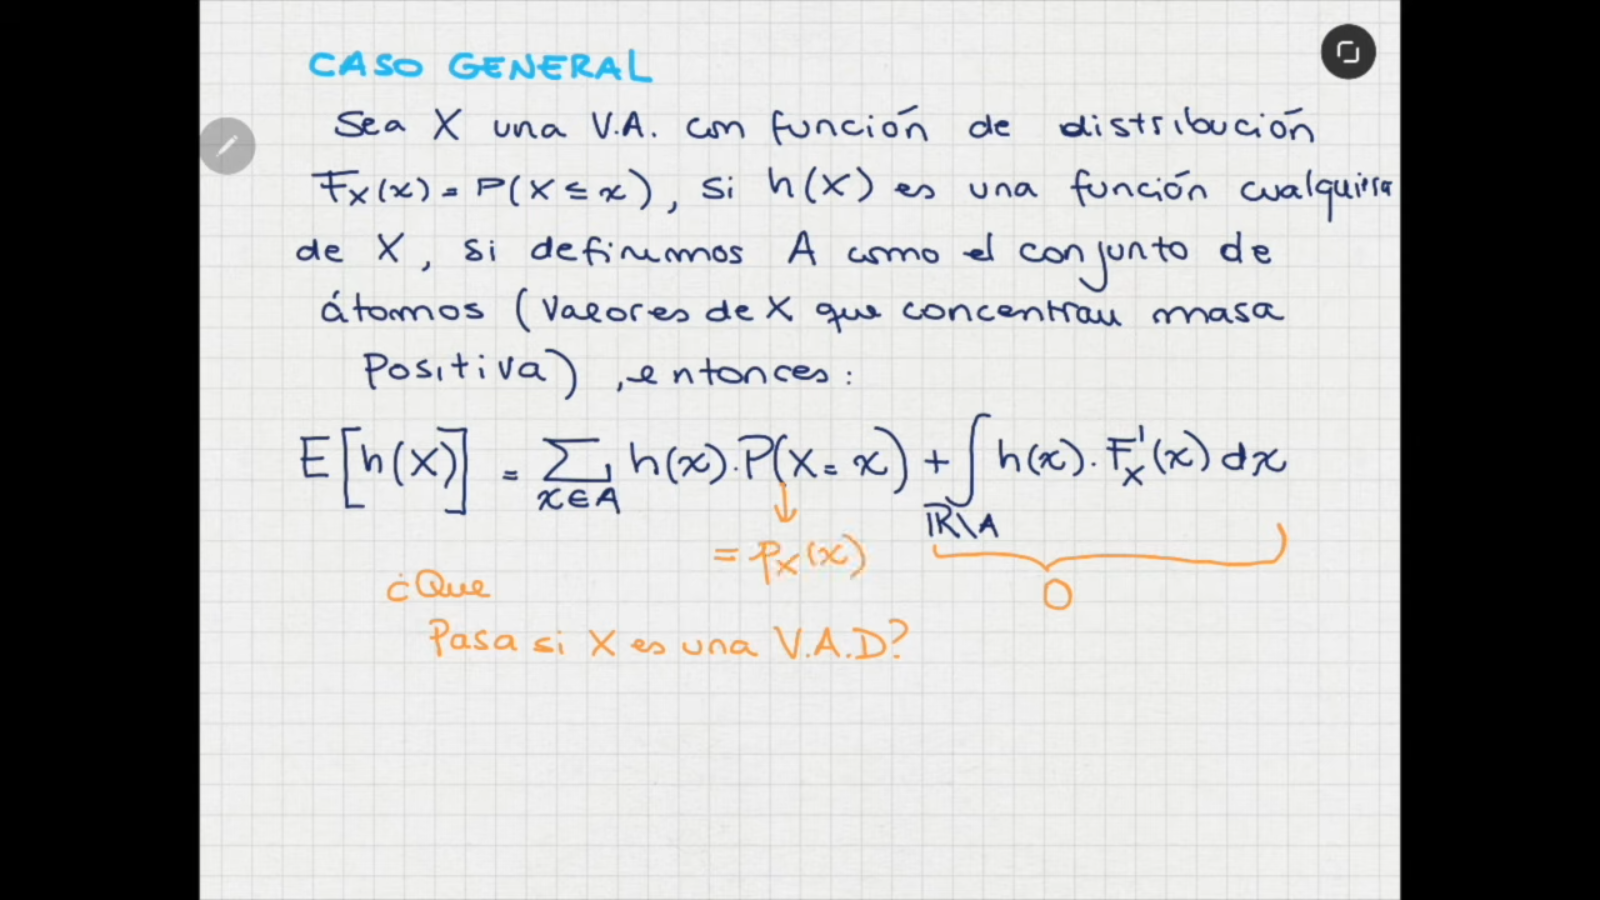 CASO GENERAL
Sea X una V.A. con función de distribución
F_X(x) = P(X ≤ x), si h(X) es una función cualquiera
de X, si definimos A como el conjunto de
átomos (Valores de X que concentran masa
Positiva), entonces:
E[h(X)] = ∑_{x∈A} h(x)·P(X = x) + ∫_{ℝ\A} h(x)·F'_X(x) dx
= p_X(x)
0
¿Que
Pasa si X es una V.A.D?